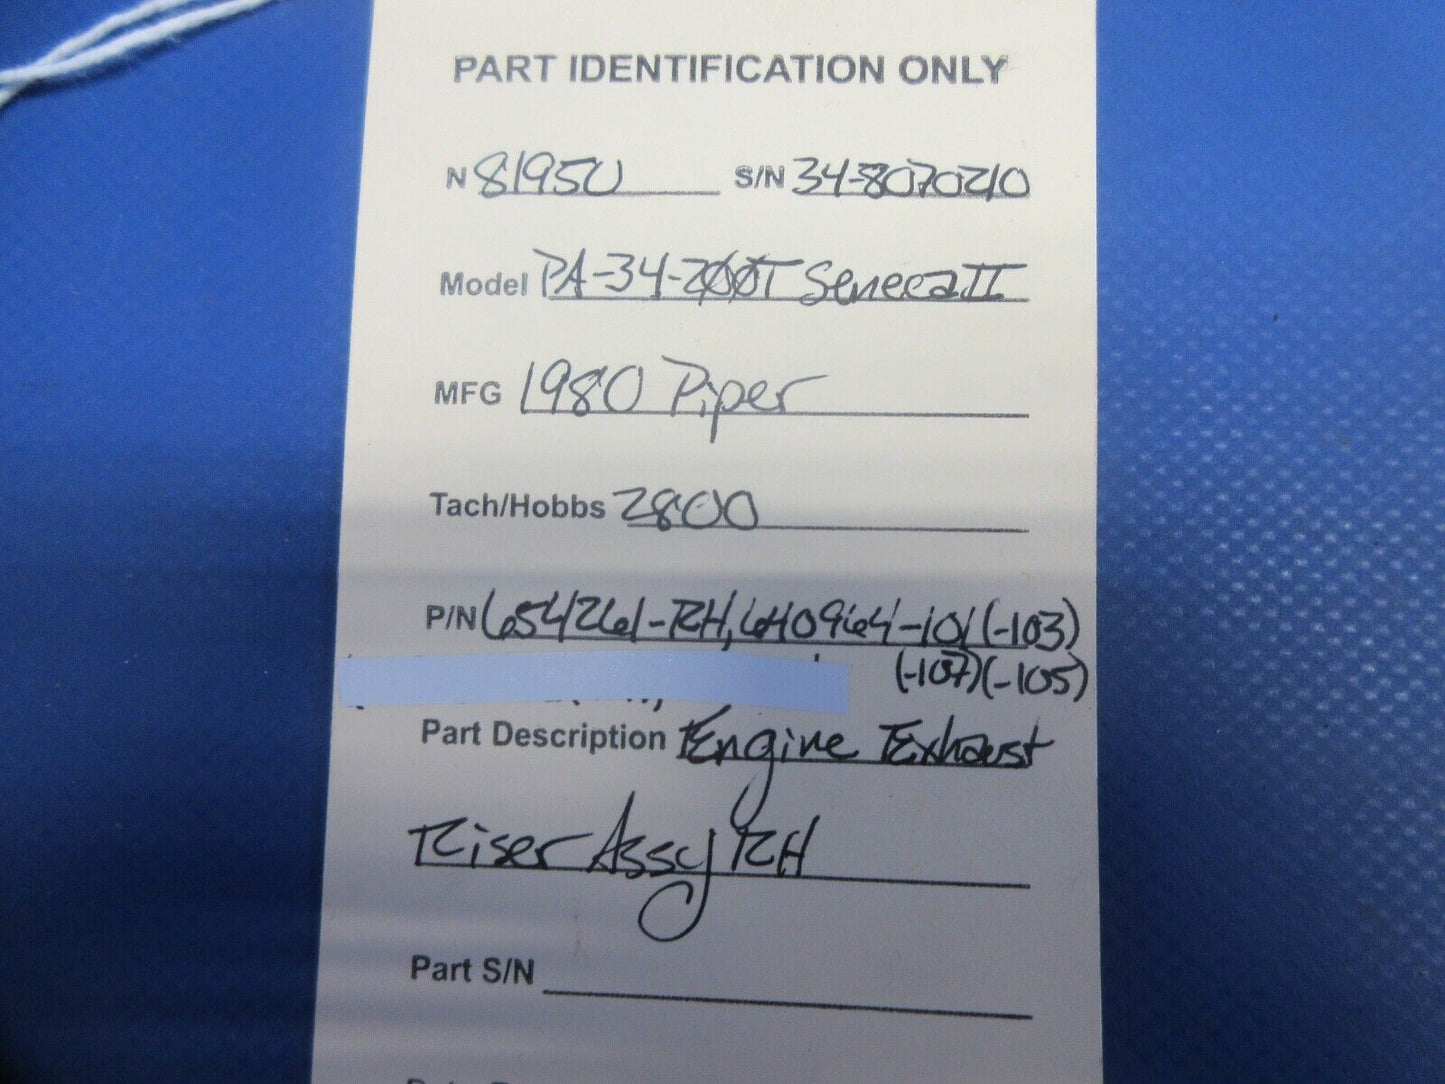 PART IDENTIFICATION ONLY
N 8195U S/N 34-8070210
Model PA-34-200T Seneca II
MFG 1980 Piper
Tach/Hobbs 2800
P/N 654261-RH, 640964-101 (-103)
(-107)(-105)
Part Description Engine Exhaust
Riser Assy RH
Part S/N